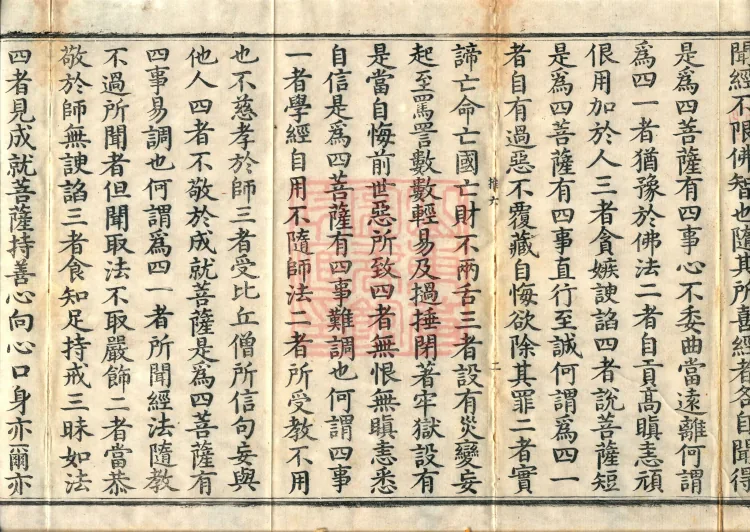 聞經不限佛智也隨其所喜經者各自聞得
是爲四菩薩有四事心不委曲當遠離何謂
爲四一者猶豫於佛法二者自貢高瞋恚頑
佷用加於人三者貪嫉諛諂四者說菩薩短
是爲四菩薩有四事直行至誠何謂爲四一
者自有過惡不覆藏自悔欲除其罪二者實
推六
二
諦亡命亡國亡財不兩舌三者設有災變妄
起至罵詈數數輕易及撾捶閉著牢獄設有
是當自悔前世惡所致四者無恨無瞋恚悉
自信是爲四菩薩有四事難調也何謂四事
一者學經自用不隨師法二者所受教不用
也不慈孝於師三者受比丘僧所信句妄與
他人四者不敬於成就菩薩是爲四菩薩有
四事易調也何謂爲四一者所聞經法隨教
不過所聞者但聞取法不取嚴飾二者當恭
敬於師無諛諂三者食知足持戒三昧如法
四者見成就菩薩持善心向心口身亦爾亦